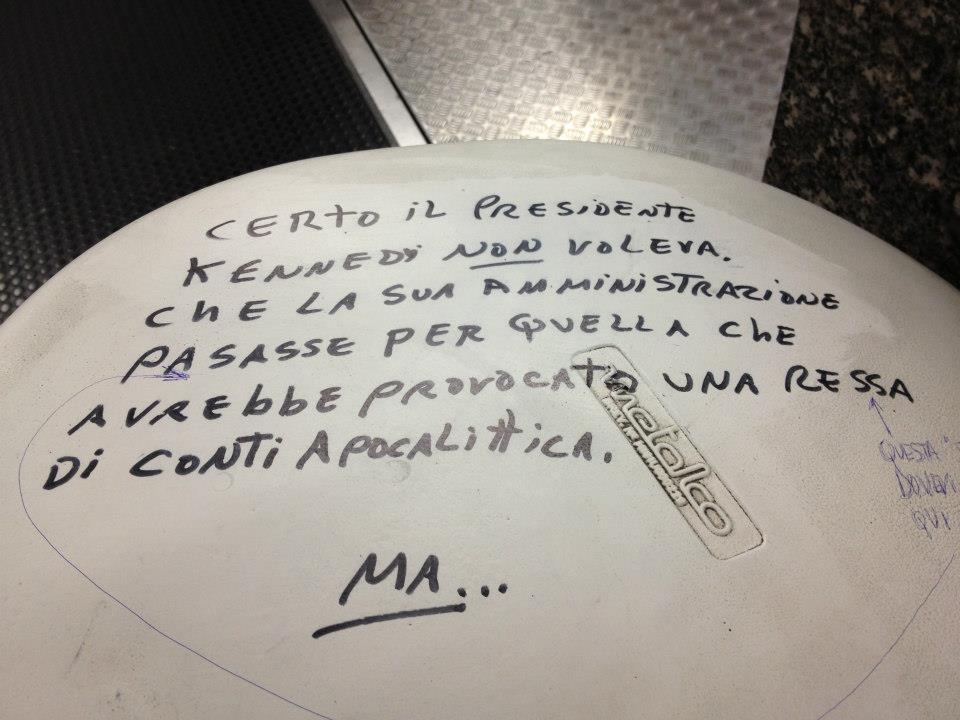 CERTO IL PRESIDENTE
KENNEDY NON VOLEVA.
CHE LA SUA AMMINISTRAZIONE
PASASSE PER QUELLA CHE
AVREBBE PROVOCATO UNA RESSA
DI CONTI APOCALITTICA.
metalco
QUESTA
QUI
MA...